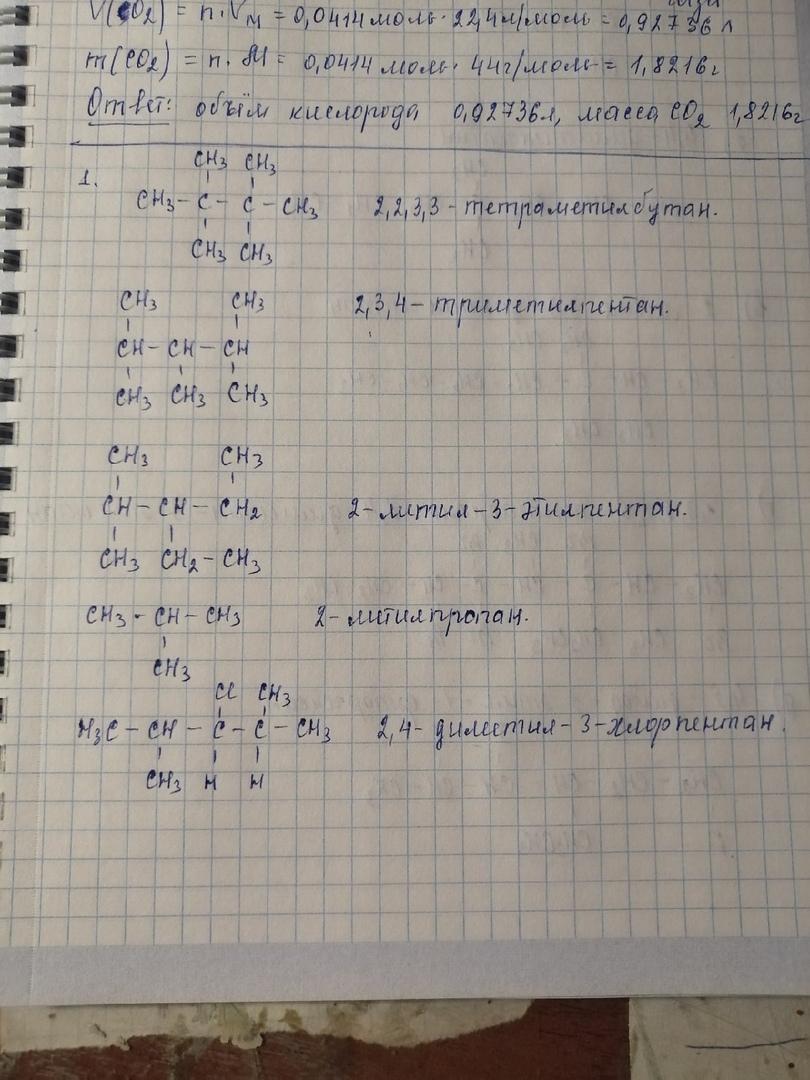 газа
V(CO₂) = n·Vм = 0,0414 моль · 22,4 л/моль = 0,92736 л
m(CO₂) = n·M = 0,0414 моль · 44г/моль = 1,8216г
Ответ: объём кислорода 0,92736л, масса CO₂ 1,8216г
1.
CH₃ CH₃
CH₃ – C – C – CH₃ 2,2,3,3 - тетраметилбутан.
CH₃ CH₃
CH₃ CH₃ 2,3,4 – триметилпентан.
CH – CH – CH
CH₃ CH₃ CH₃
CH₃ CH₃
CH – CH – CH₂ 2-митил-3-этилпентан.
CH₃ CH₂ – CH₃
CH₃ - CH – CH₃ 2-митилпропан.
CH₃
Cl CH₃
H₃C – CH – C – C – CH₃ 2,4-диметил-3-хлорпентан.
CH₃ H H